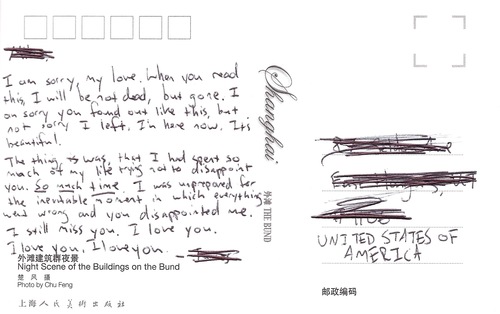 I am sorry, my love. When you read
this, I will be not dead, but gone. I
am sorry you found out like this, but
not sorry I left. I'm here now. It's
beautiful.
The thing is was, that I had spent so
much of my life trying not to disappoint
you. So much time. I was unprepared for
the inevitable moment in which everything
went wrong and you disappointed me.
I still miss you. I love you.
I love you. I love you.
外滩建筑群夜景
Night Scene of the Buildings on the Bund
楚风 摄
Photo by Chu Feng
上海人民美术出版社
Shanghai
外滩 THE BUND
UNITED STATES OF
AMERICA
邮政编码